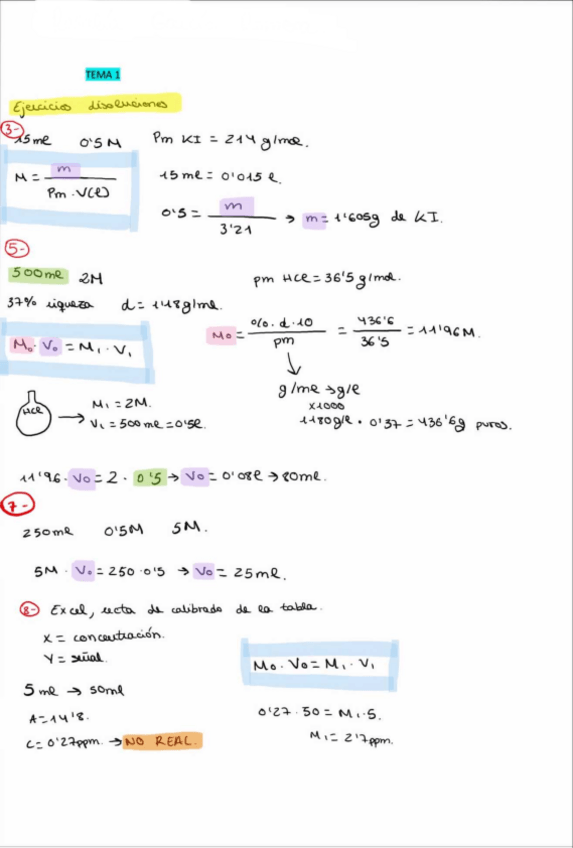 TEMA 1
Ejercicios disoluciones
3- 15ml 0'5M Pm KI = 214 g/mol.
M = m / Pm · V(l)
15ml = 0'015 l.
0'5 = m / 3'21 → m = 1'605g de KI.
5-
500ml 2M pm HCl = 36'5 g/mol.
37% riqueza d = 1'18g/ml.
M₀ · V₀ = M₁ · V₁
M₀ = %. d · 10 / pm = 436'6 / 36'5 = 11'96M.
g/ml → g/l
x1000
1180g/l · 0'37 = 436'6g puros.
HCl → M₁ = 2M.
V₁ = 500ml = 0'5l.
11'96 · V₀ = 2 · 0'5 → V₀ = 0'08l → 80ml.
7-
250ml 0'5M 5M.
5M · V₀ = 250 · 0'5 → V₀ = 25ml.
8- Excel, recta de calibrado de la tabla.
X = concentración.
Y = señal.
M₀ · V₀ = M₁ · V₁
5ml → 50ml
A = 14'8.
C = 0'27ppm. → NO REAL.
0'27 · 50 = M₁ · 5.
M₁ = 2'7ppm.